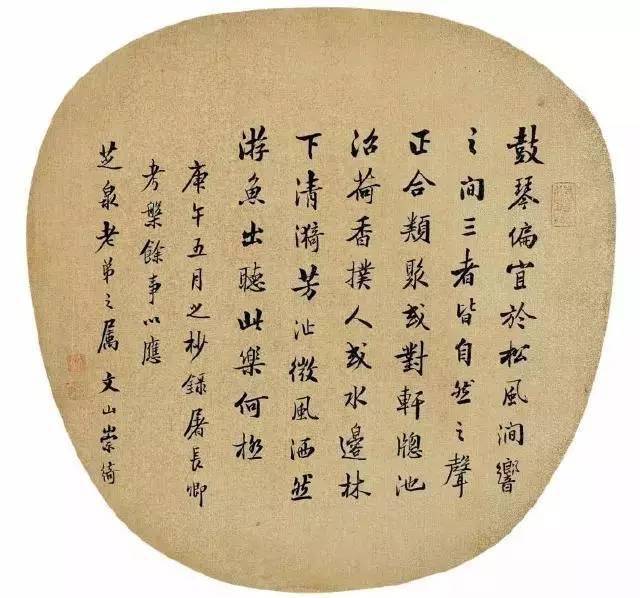 鼓琴偏宜於松風澗響
之間三者皆自然之聲
正合類聚或對軒牕池
沼荷香撲人或水邊林
下清漪芳沚微風洒然
游魚出聽此樂何極
庚午五月之杪録屠長卿
考槃餘事以應
芝泉老弟之属 文山崇綺